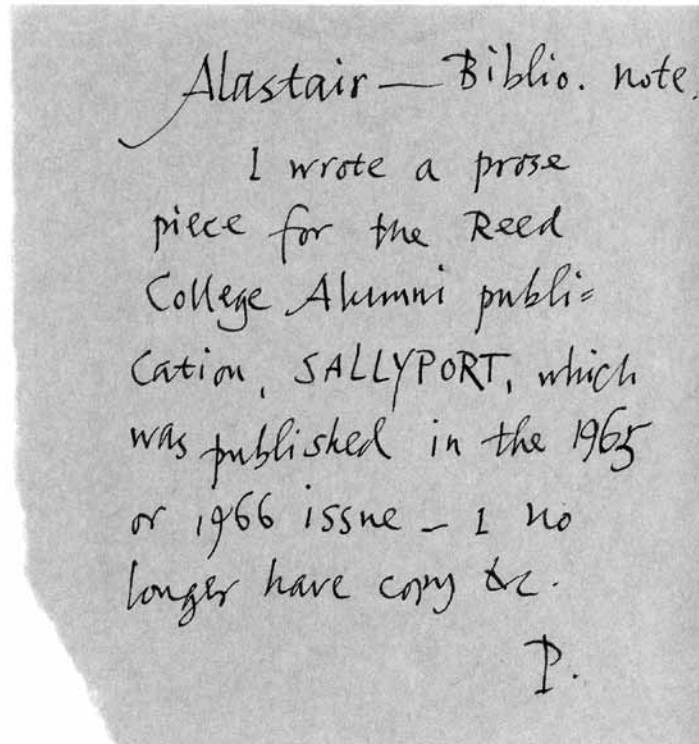 Alastair — Biblio. note.
I wrote a prose
piece for the Reed
College Alumni publi=
cation, SALLYPORT, which
was published in the 1965
or 1966 issue — I no
longer have copy &c.
P.